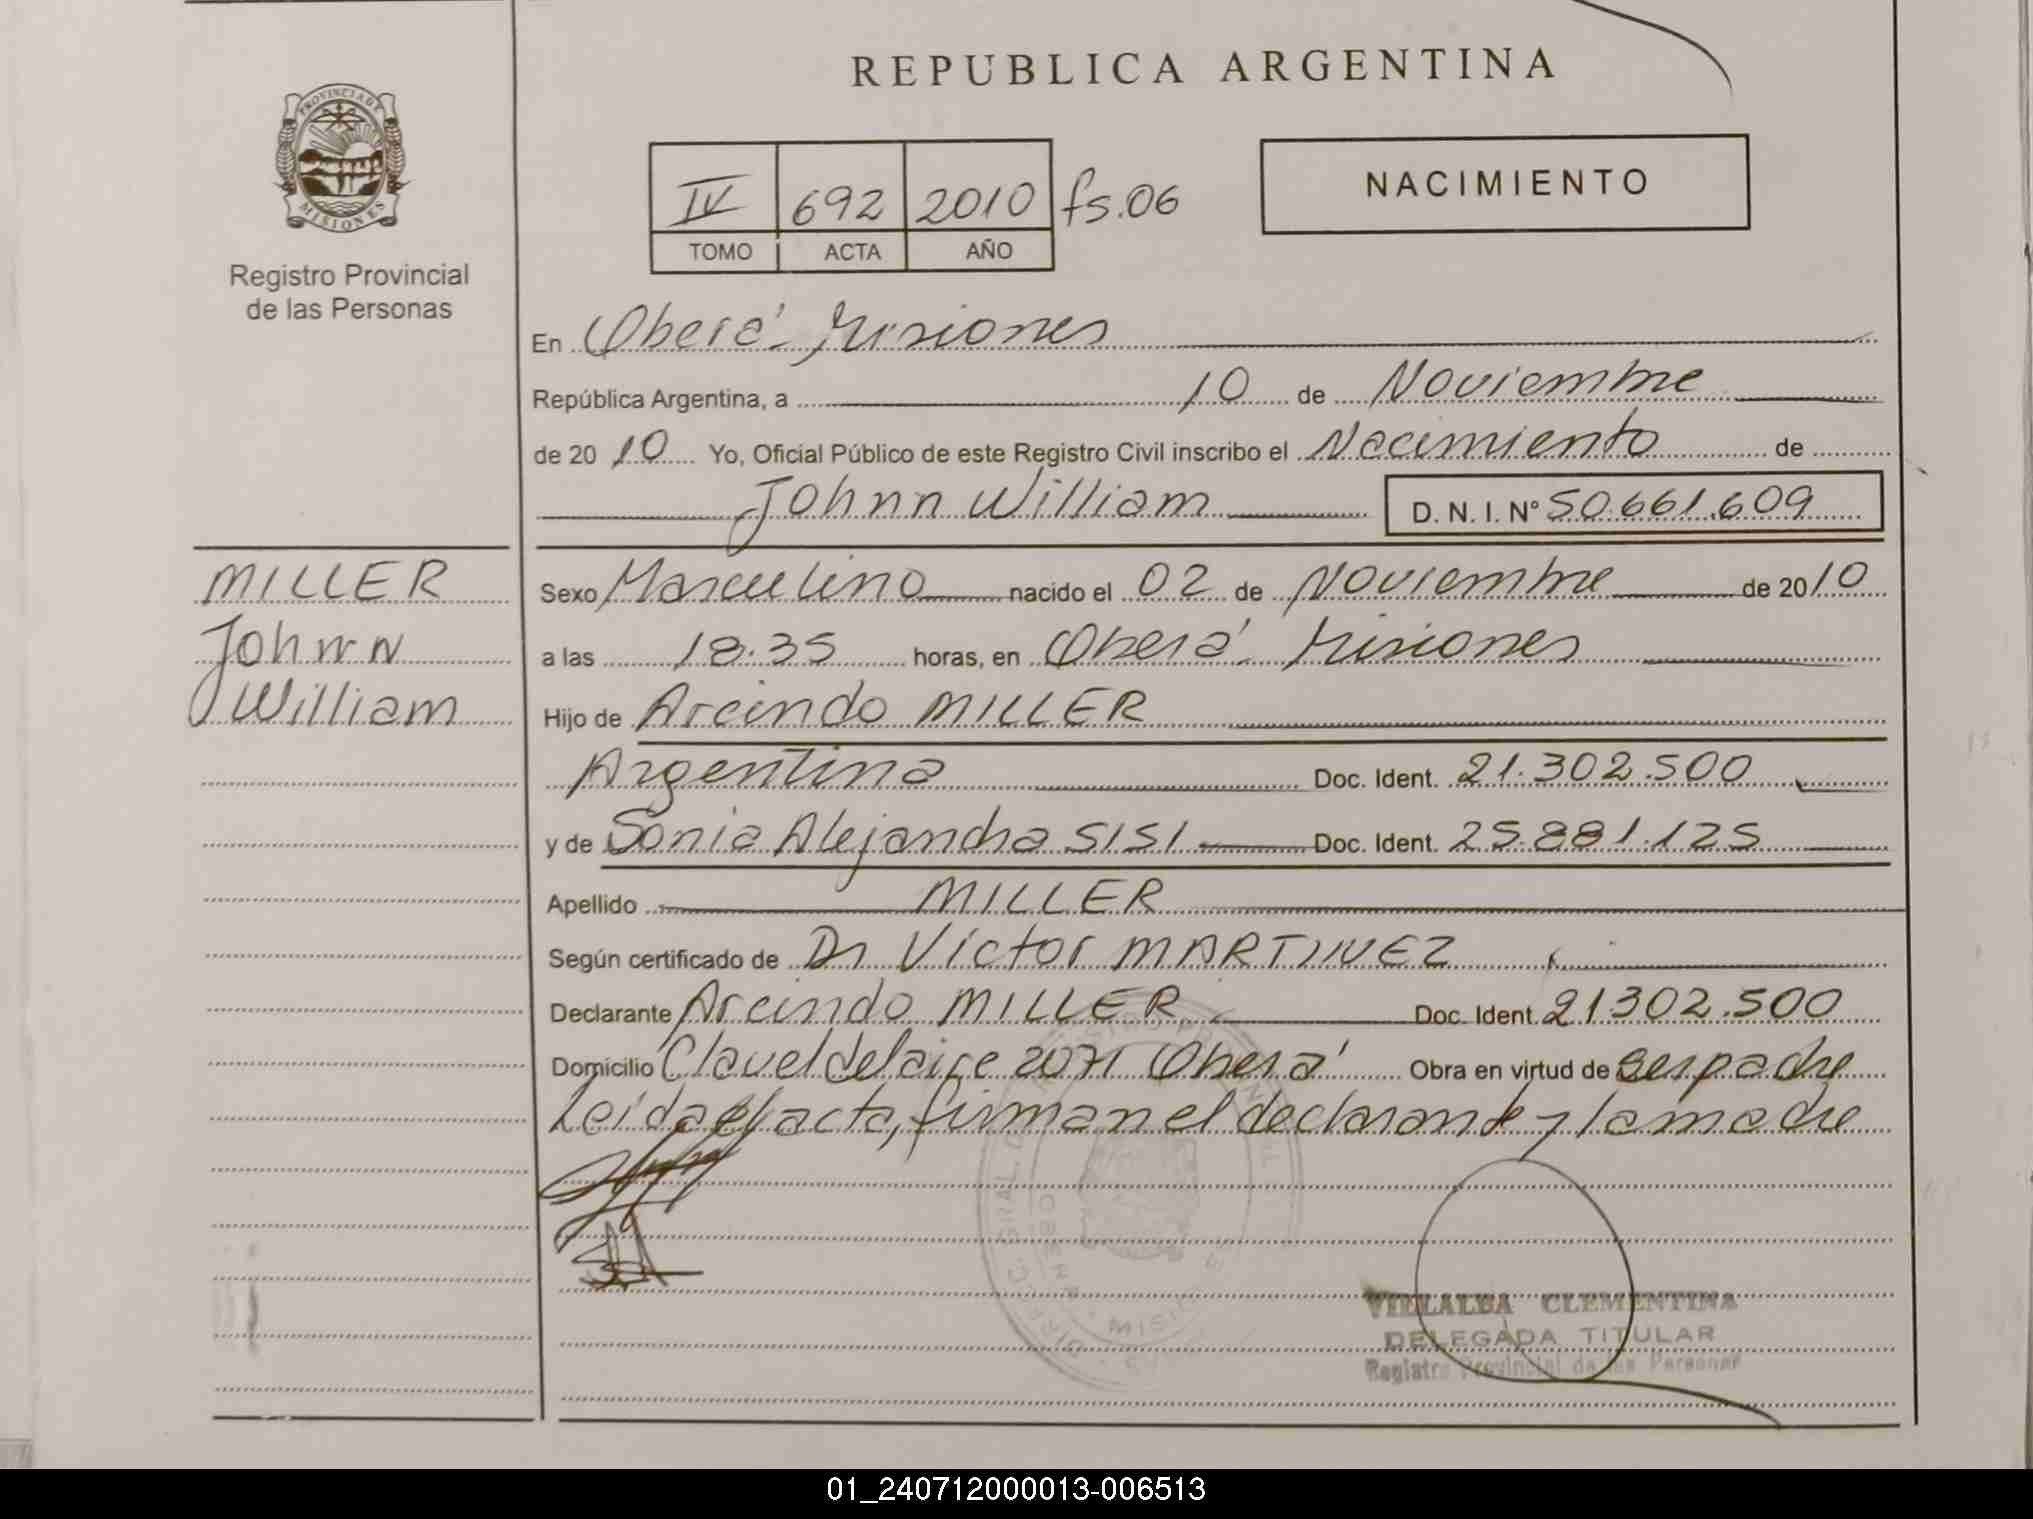 REPUBLICA ARGENTINA
PROVINCIA DE
MISIONES
Registro Provincial
de las Personas
IV 692 2010 fs.06
TOMO ACTA AÑO
NACIMIENTO
En Oberá Misiones
República Argentina, a 10 de Noviembre
de 2010 Yo, Oficial Público de este Registro Civil inscribo el Nacimiento de
Johnn William D. N. I. N° 50.661.609
MILLER
Johnn
William
Sexo Masculino nacido el 02 de Noviembre de 2010
a las 18.35 horas, en Oberá Misiones
Hijo de Arcindo MILLER
Argentina Doc. Ident. 21.302.500
y de Sonia Alejandra SISI Doc. Ident. 25.881.125
Apellido MILLER
Según certificado de Dr Víctor MARTINEZ
Declarante Arcindo MILLER Doc. Ident. 21302.500
Domicilio Clavel del aire 2071 Oberá Obra en virtud de ser padre
Leída el acta, firman el declarante y la madre
VILLALBA CLEMENTINA
DELEGADA TITULAR
Registro Provincial de las Personas
01_240712000013-006513